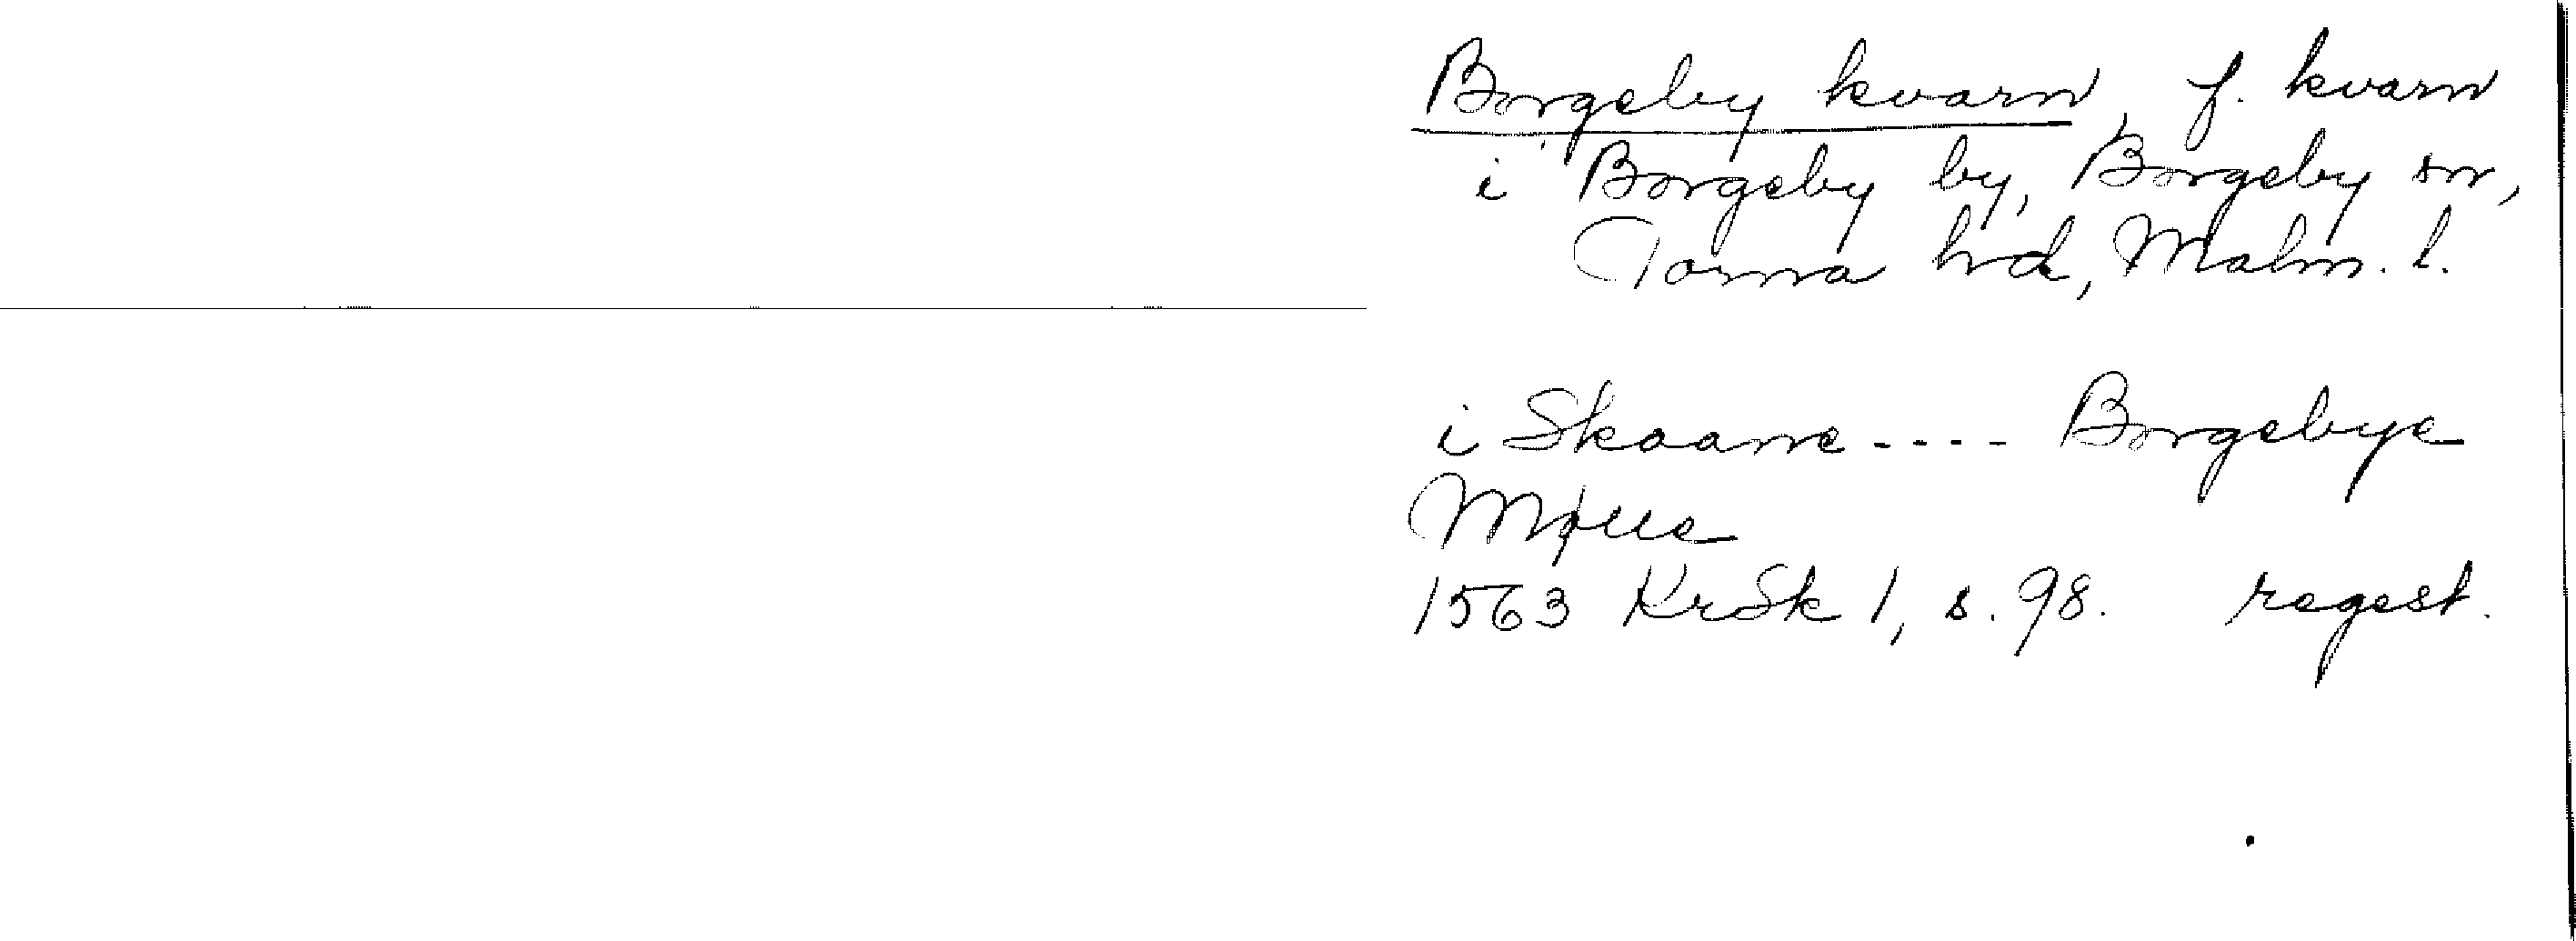 Borgeby kvarn, f. kvarn
i Borgeby by, Borgeby sn,
Torna hd, Malm. l.
i Skaane .... Borgebye
Mølle
1563 KrSk 1, s. 98. regest.